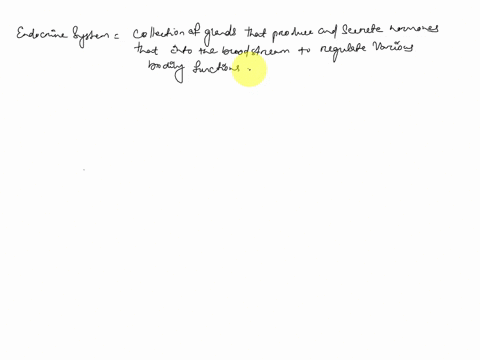 Endocrine System = Collection of glands that produce and secrete hormones
that into the bloodstream to regulate various
bodily functions.